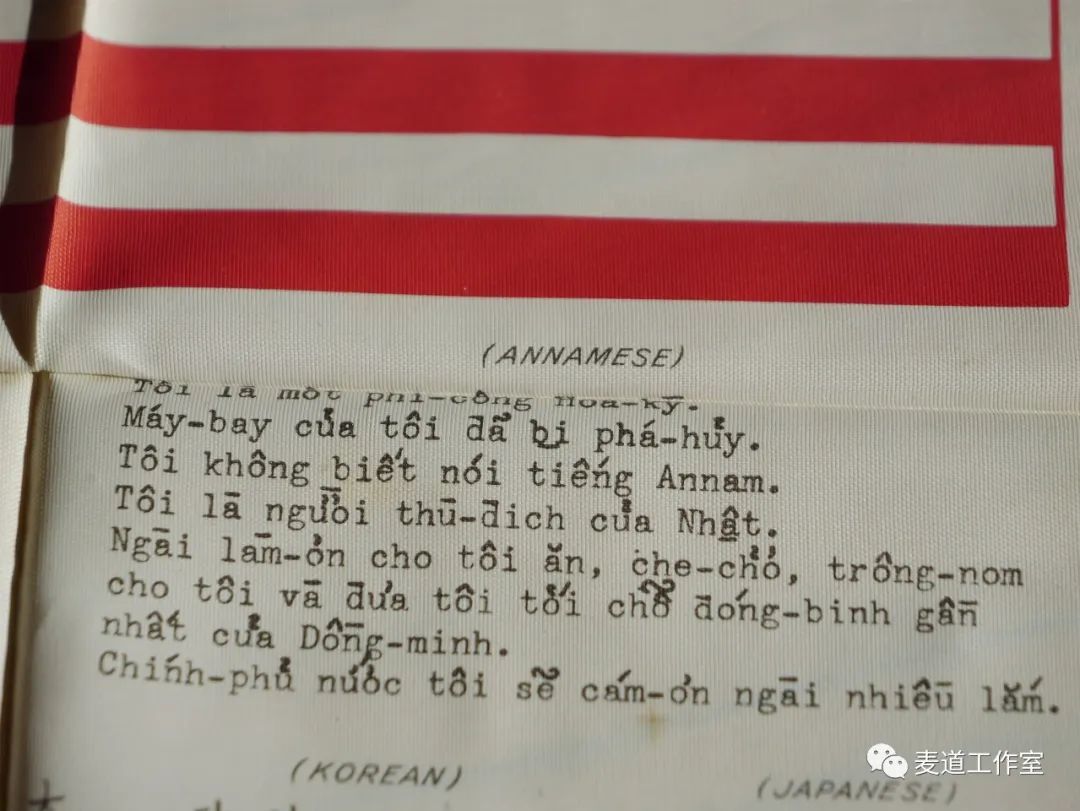 (ANNAMESE)
Tôi là một phi-công Hoa-kỳ.
Máy-bay của tôi đã bị phá-hủy.
Tôi không biết nói tiếng Annam.
Tôi là người thù-địch của Nhật.
Ngài làm-ơn cho tôi ăn, che-chở, trông-nom
cho tôi và đưa tôi tới chỗ đóng-binh gần
nhất của Dồng-minh.
Chính-phủ nước tôi sẽ cám-ơn ngài nhiều lắm.
(KOREAN)
(JAPANESE)
麦道工作室